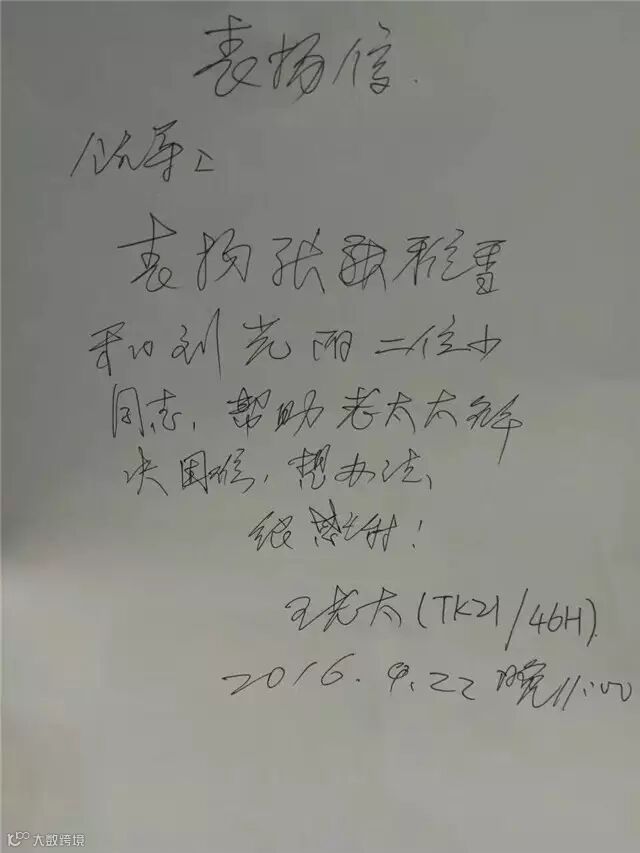 表扬信.
领导:
表扬张 雅雪
和刘芫雨二位少
同志,帮助老太太解
决困难,想办法,
很感谢!
王老太(TK21/46H)
2016.9.22 晚11:00
大数跨境